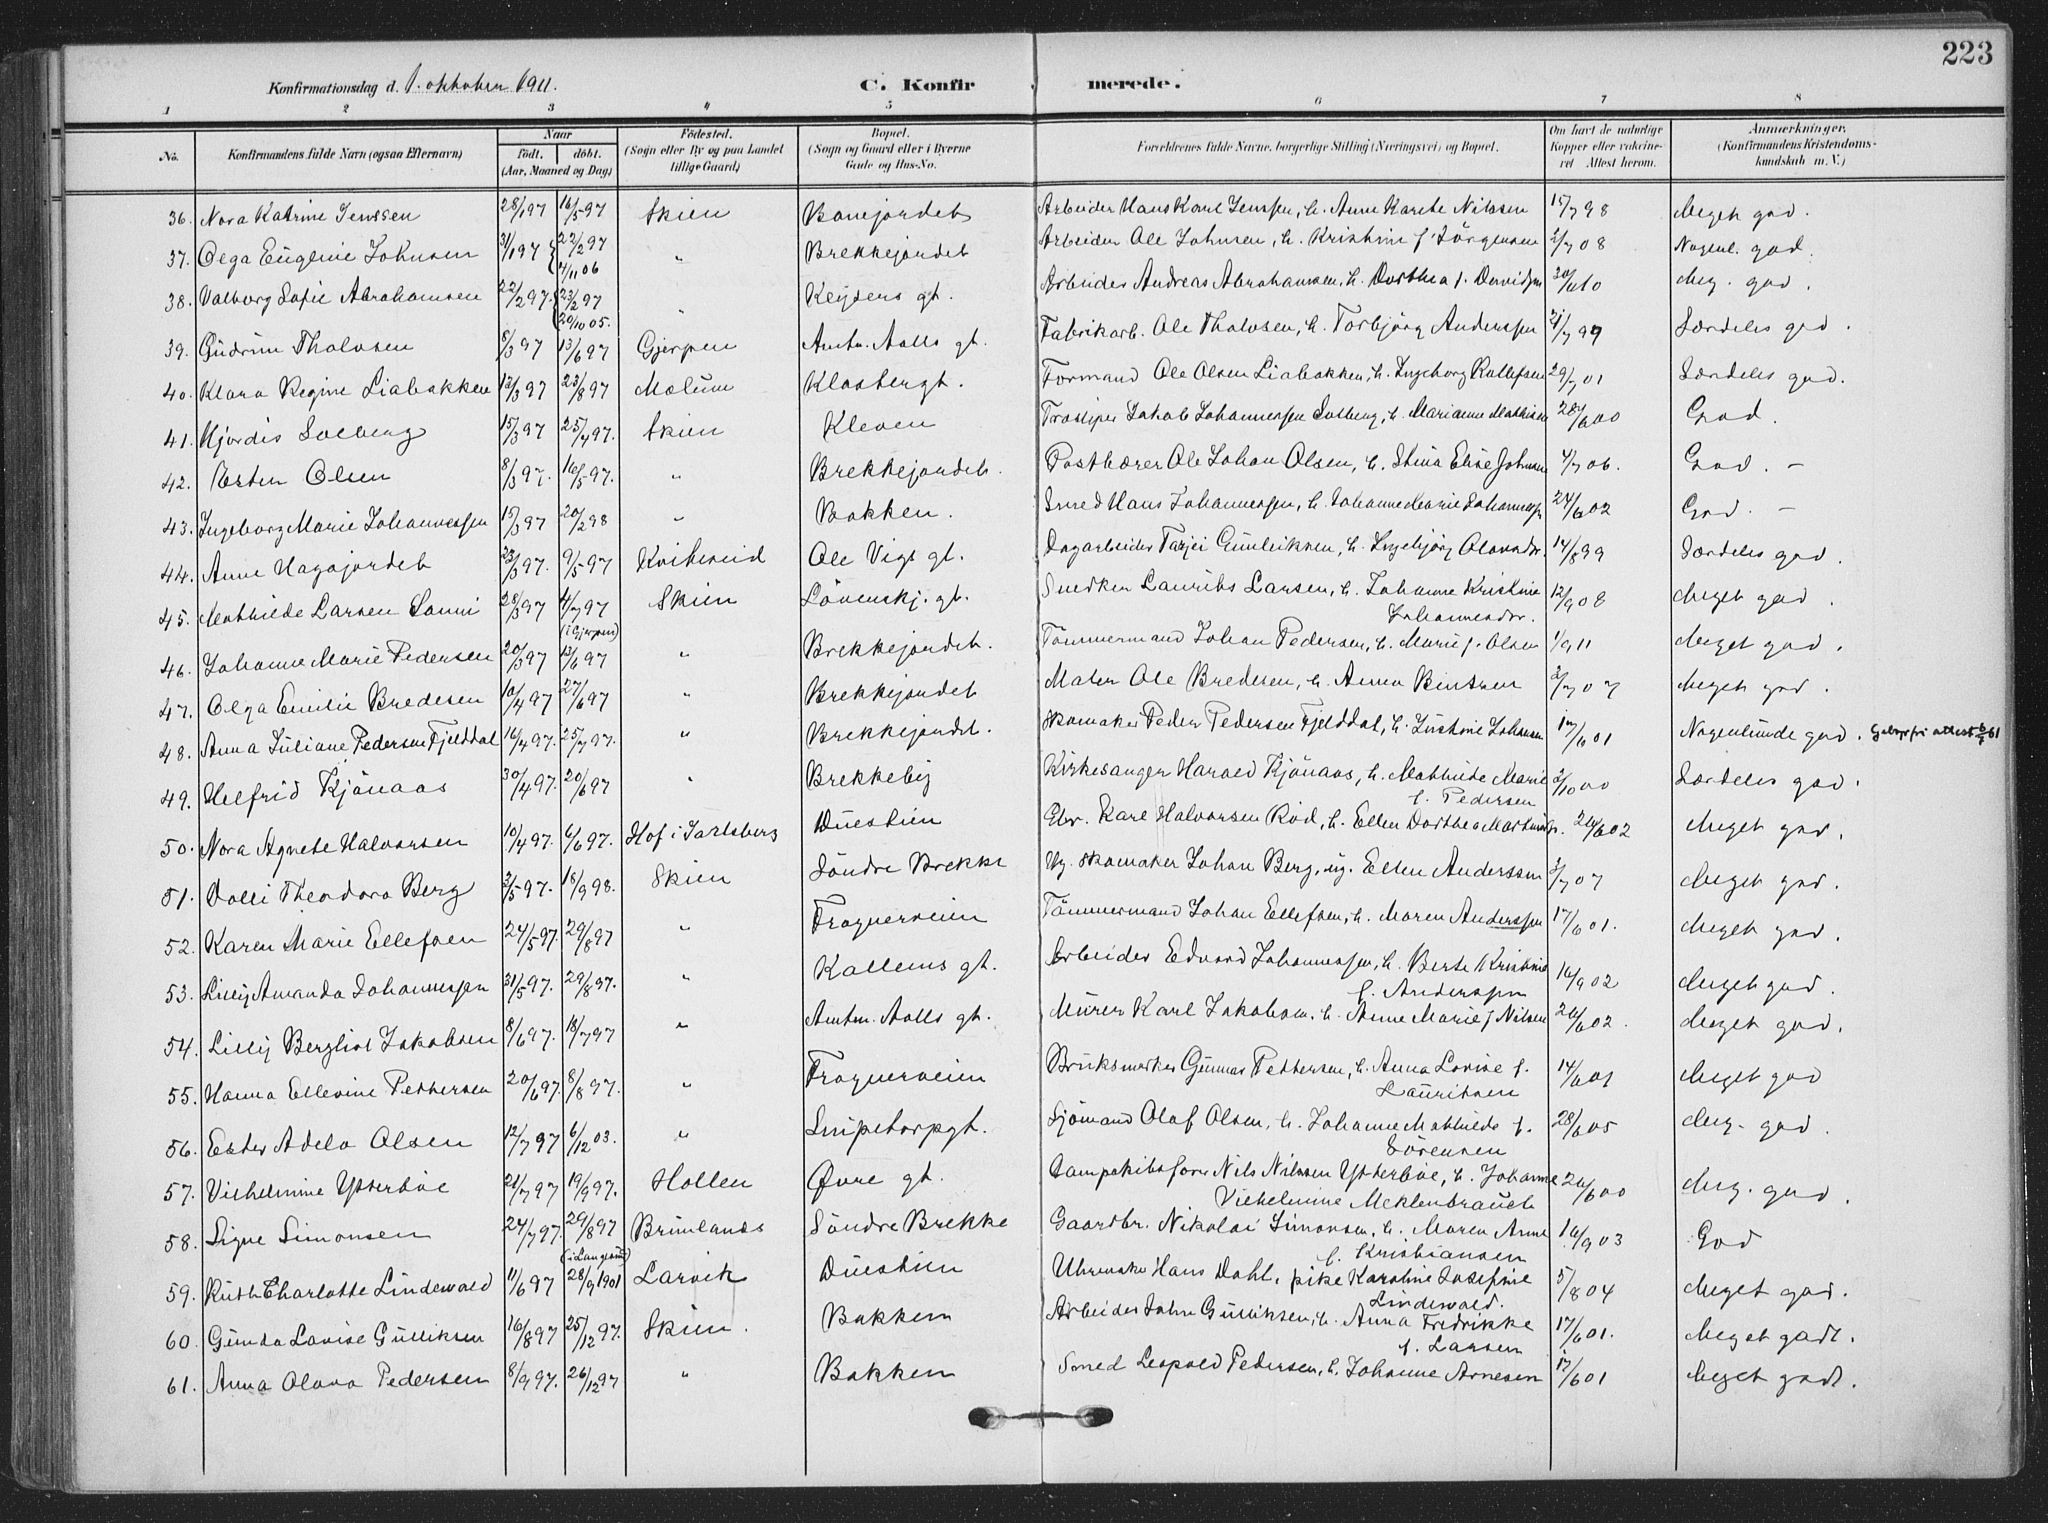 223
Konfirmationsdag d. 1. oktober 1911.
C. Konfirmerede.
1 2 3 4 5 6 7 8
No. Konfirmandens fulde Navn (ogsaa Efternavn) Naar født. døbt. (Aar, Maaned og Dag) Fødested. (Sogn eller By og paa Landet tillige Gaard) Bopæl. (Sogn og Gaard eller i Byerne Gade og Hus-No. Forældrenes fulde Navne, borgerlige Stilling (Næringsvei) og Bopæl. Om havt de naturlige Kopper eller vakcineret Attest herom. Anmærkninger. (Konfirmandens Kristendomskundskab m. V.)
36. Nora Katrine Jenssen 28/1 97 16/5 97 Skien Banejordet Arbeider Hans Karl Jenssen, h. Anne Karete Nilssen 15/7 98 Meget god.
37. Olga Eugenie Johnsen 31/1 97 22/2 97 4/11 06 " Brekkejordet Arbeider Ole Johnsen, h. Kristine f. Jörgensen 2/7 08 Nogenl. god.
38. Valborg Sofie Abrahamsen 22/2 97. 23/2 97 20/10 05. " Keysers gt. Arbeider Andreas Abrahamsen, h. Dorthea f. 30/6 10 Meg. god.
39. Gudrun Tholvsen 8/3 97 13/6 97 Gjerpen Amtm. Aalls gt. Fabrikarb. Ole Tholvsen, h. Torbjörg Anderssen 21/7 99 Særdeles god.
40. Klara Regine Liabakken 12/3 97 23/8 97 Melum Klosbergt. Formand Ole Olsen Liabakken, h. Ingeborg Rollefsen 29/7 01 Særdeles god.
41. Hjordis Solberg 15/3 97 25/4 97. Skien Kleven Jakob Johannessen Solberg, h. Marianne Mathisen 28/6 00 God.
42. Ester Olsen 8/3 97. 16/5 97. " Brekkejordet. Postbærer Ole Johan Olsen, h. Stina Elise Johnsen 4/7 06. God. –
43. Ingeborg Marie Johannessen 15/3 97 20/2 98 " Bakken. Smed Hans Johannessen, h. Johanne Marie Johannessen 24/6 02 God. –
44. Anne Hagajordet 23/3 97. 9/5 97 Kviteseid Ole Vigs gt. Dagarbeider Tarjei Gunleiksen, h. Ingebjörg Olavsdr. 14/8 99 Særdeles god.
45. Mathilde Larsen Sanni 28/3 97 4/7 97 (i Gjerpen) Skien Lövenskj. gt. Snedker Laurits Larsen, h. Johanne Kristine Johannesdr. 12/9 08 Meget god.
46. Johanne Marie Pedersen 20/3 97 13/6 97 " Brekkejordet. Tömmermand Johan Pedersen, h. Marie f. Olsen 1/9 11 Meget god.
47. Olga Emilie Bredesen 10/4 97 27/6 97 " Brekkejordet Maler Ole Bredesen, h. Anna Bentsen 2/7 07 Meget god.
48. Anna Juliane Pedersen Fjelddal 16/4 97. 25/7 97. " Brekkejordet. Skomaker Peder Pedersen Fjelddal, h. Justine Johansen 17/6 01 Nogenlunde god. Gebyrfri attest
49. Helfrid Kjönaas 30/4 97. 20/6 97 " Brekkeby Kirkesanger Harald Kjönaas, h. Mathilde Marie f. Pedersen 2/10 00 Særdeles god.
50. Nora Agnete Halvorsen 10/4 97. 6/6 97. Hof i Jarlsberg Duestien Karl Halvorsen Röd, h. Ellen Dorthea 24/6 02 Meget god.
51. Valli Theodora Berg 3/5 97. 18/9 98. Skien Söndre Brekke Ug. skomaker Johan Berg, ug. Ellen Anderssen 3/7 07 Meget god.
52. Karen Marie Ellefsen 24/5 97. 29/8 97 " Frognerveien Tömmermand Johan Ellefsen, h. Maren Anderssen 17/6 01. Meget god.
53. Lilly Amanda Johannessen 31/5 97. 29/8 97. " Kollens gt. Arbeider Edvard Johannessen, h. Berte Kristine f. Anderssen 16/9 02 Meget god.
54. Lilly Bergliot Jakobsen 8/6 97. 18/7 97 " Amtm. Aalls gt. Murer Karl Jakobsen, h. Anne Marie f Nilsen 24/6 02. Meget god.
55. Hanna Ellevine Pettersen 20/6 97. 8/8 97. " Frognerveien Gunnar Pettersen, h. Anna Lovise f. Lauritsen 14/6 01 Meget god
56. Ester Adela Olsen 12/7 97 6/12 03. " Snipetorpgt. Sjömand Olaf Olsen, h. Johanne Mathilde f. Sörensen 28/6 05 Meg. god.
57. Vilhelmine Ytterböe 21/7 97 19/9 97. Hollen Övre gt. Dampskibsförer Nils Nilssen Ytterböe, h. Johanne Vilhelmine Meklenbrauch 26/6 00 Meg. god.
58. Signe Simonsen 24/7 97. 29/8 97 (i Langesund) Brunlanæs Söndre Brekke Gaardbr. Nikolai Simonsen, h. Maren Anne f. Kristiansen 16/9 03 God
59. Ruth Charlotte Lindewald 11/6 97 28/9 1901 Larvik Duestien Uhrmaker Hans Dahl, pike Karoline Josefine Lindewald. 5/8 04 Meget god.
60. Gunda Lovise Gulliksen 16/8 97 25/12 97. Skien. Bakken Arbeider John Gulliksen, h. Anna Fredrikke f. Larsen 17/6 01. Meget godt.
61. Anna Olava Pedersen 8/9 97. 26/12 97 " Bakken Smed Leopold Pedersen, h. Johanne Arnesen 17/6 01 Meget godt.